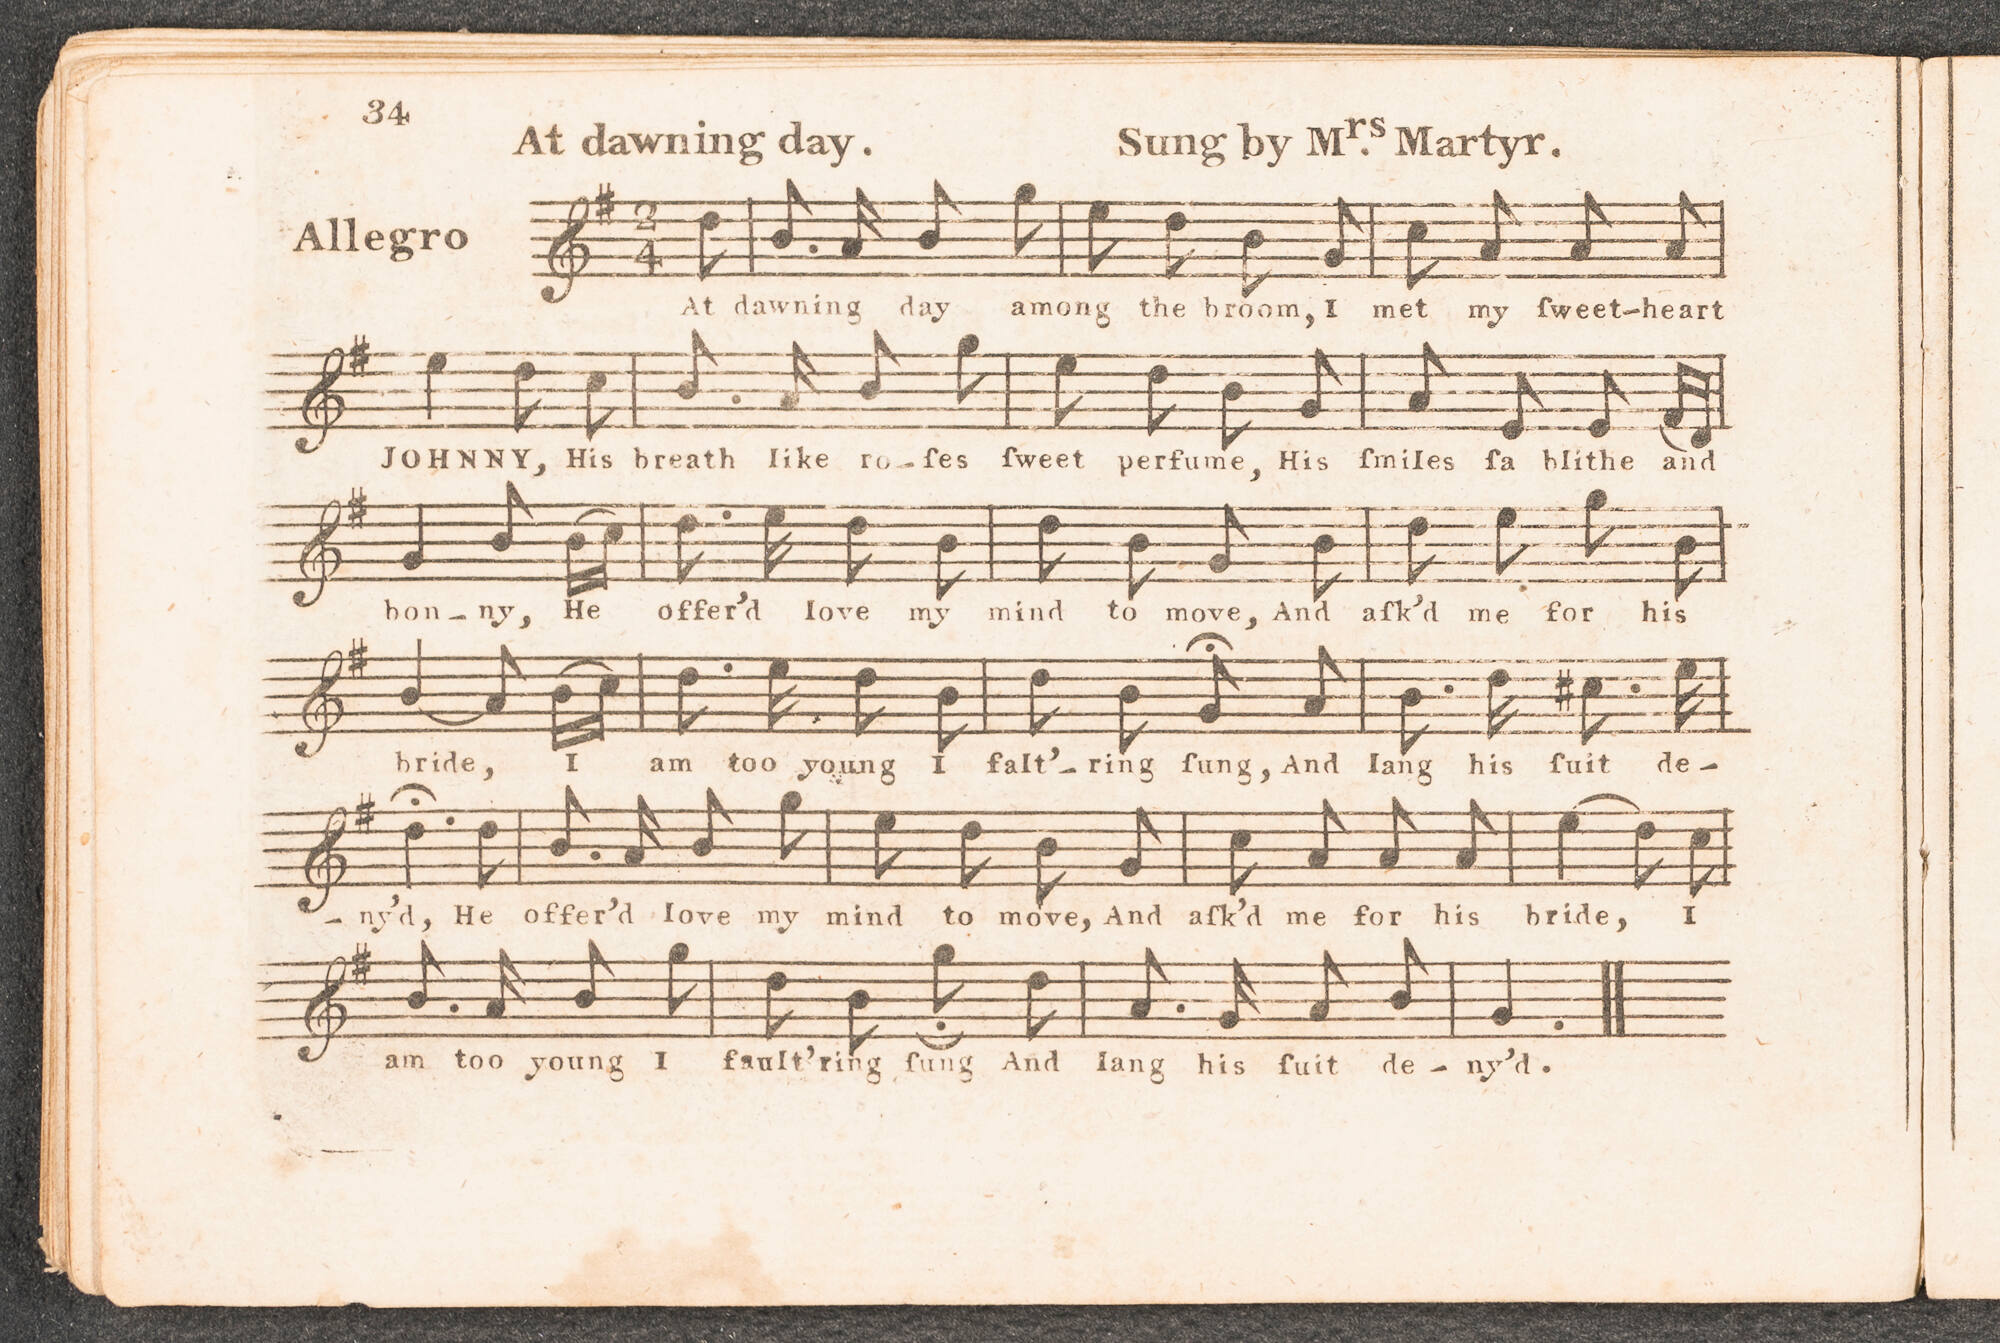 34
At dawning day. Sung by Mrs. Martyr.
Allegro
2
4
At dawning day among the broom, I met my ſweet-heart
JOHNNY, His breath like ro-ſes ſweet perfume, His ſmiles ſa blithe and
bon-ny, He offer'd love my mind to move, And aſk'd me for his
bride, I am too young I falt'-ring ſung, And lang his ſuit de-
-ny'd, He offer'd love my mind to move, And aſk'd me for his bride, I
am too young I fault'ring ſung And lang his ſuit de-ny'd.